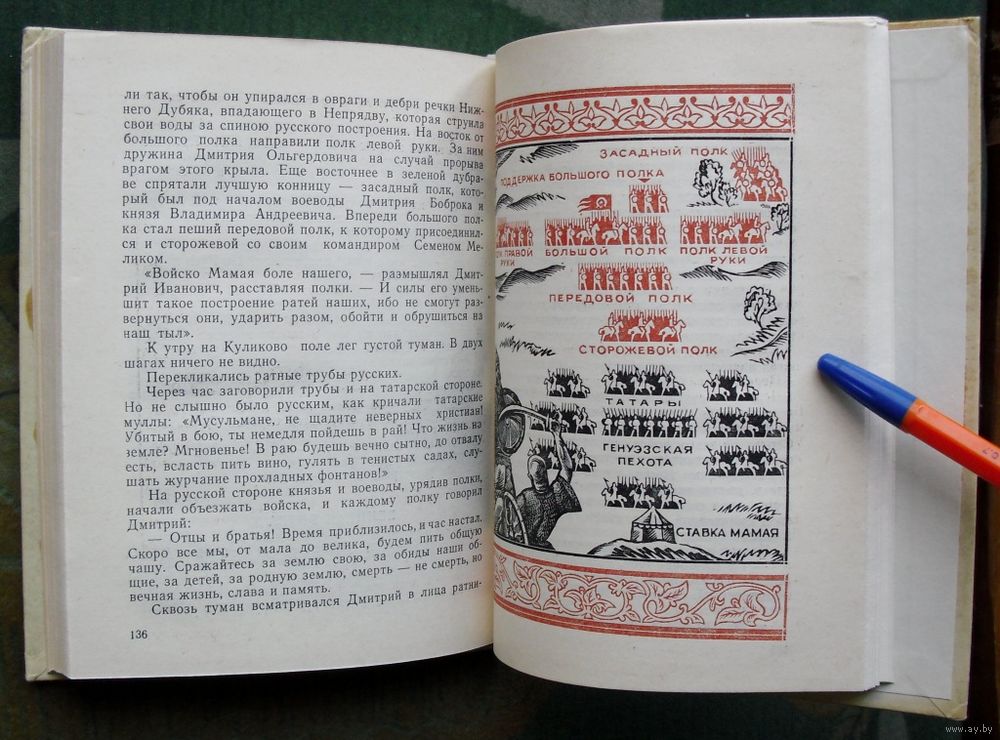 ли так, чтобы он упирался в овраги и дебри речки Ниж-
него Дубяка, впадающего в Непрядву, которая струила
свои воды за спиною русского построения. На восток от
большого полка направили полк левой руки. За ним
дружина Дмитрия Ольгердовича на случай прорыва
врагом этого крыла. Еще восточнее в зеленой дубра-
ве спрятали лучшую конницу — засадный полк, кото-
рый был под началом воеводы Дмитрия Боброка и
князя Владимира Андреевича. Впереди большого пол-
ка стал пеший передовой полк, к которому присоединил-
ся и сторожевой со своим командиром Семеном Ме-
ликом.
«Войско Мамая боле нашего, — размышлял Дмит-
рий Иванович, расставляя полки. — И силы его умень-
шит такое построение ратей наших, ибо не смогут раз-
вернуться они, ударить разом, обойти и обрушиться на
наш тыл».
К утру на Куликово поле лег густой туман. В двух
шагах ничего не видно.
Перекликались ратные трубы русских.
Через час заговорили трубы и на татарской стороне.
Но не слышно было русским, как кричали татарские
муллы: «Мусульмане, не щадите неверных христиан!
Убитый в бою, ты немедля пойдешь в рай! Что жизнь на
земле? Мгновенье! В раю будешь вечно сытно, до отвалу
есть, всласть пить вино, гулять в тенистых садах, слу-
шать журчание прохладных фонтанов!»
На русской стороне князья и воеводы, урядив полки,
начали объезжать войска, и каждому полку говорил
Дмитрий:
— Отцы и братья! Время приблизилось, и час настал.
Скоро все мы, от мала до велика, будем пить общую
чашу. Сражайтесь за землю свою, за обиды наши об-
щие, за детей, за родную землю, смерть — не смерть, но
вечная жизнь, слава и память.
Сквозь туман всматривался Дмитрий в лица ратни-
136
ЗАСАДНЫЙ ПОЛК
ПОДДЕРЖКА БОЛЬШОГО ПОЛКА
ПРАВОЙ
РУКИ
БОЛЬШОЙ ПОЛК
ПОЛК ЛЕВОЙ
РУКИ
ПЕРЕДОВОЙ ПОЛК
СТОРОЖЕВОЙ ПОЛК
ТАТАРЫ
ГЕНУЭЗСКАЯ
ПЕХОТА
СТАВКА МАМАЯ
www.ay.by